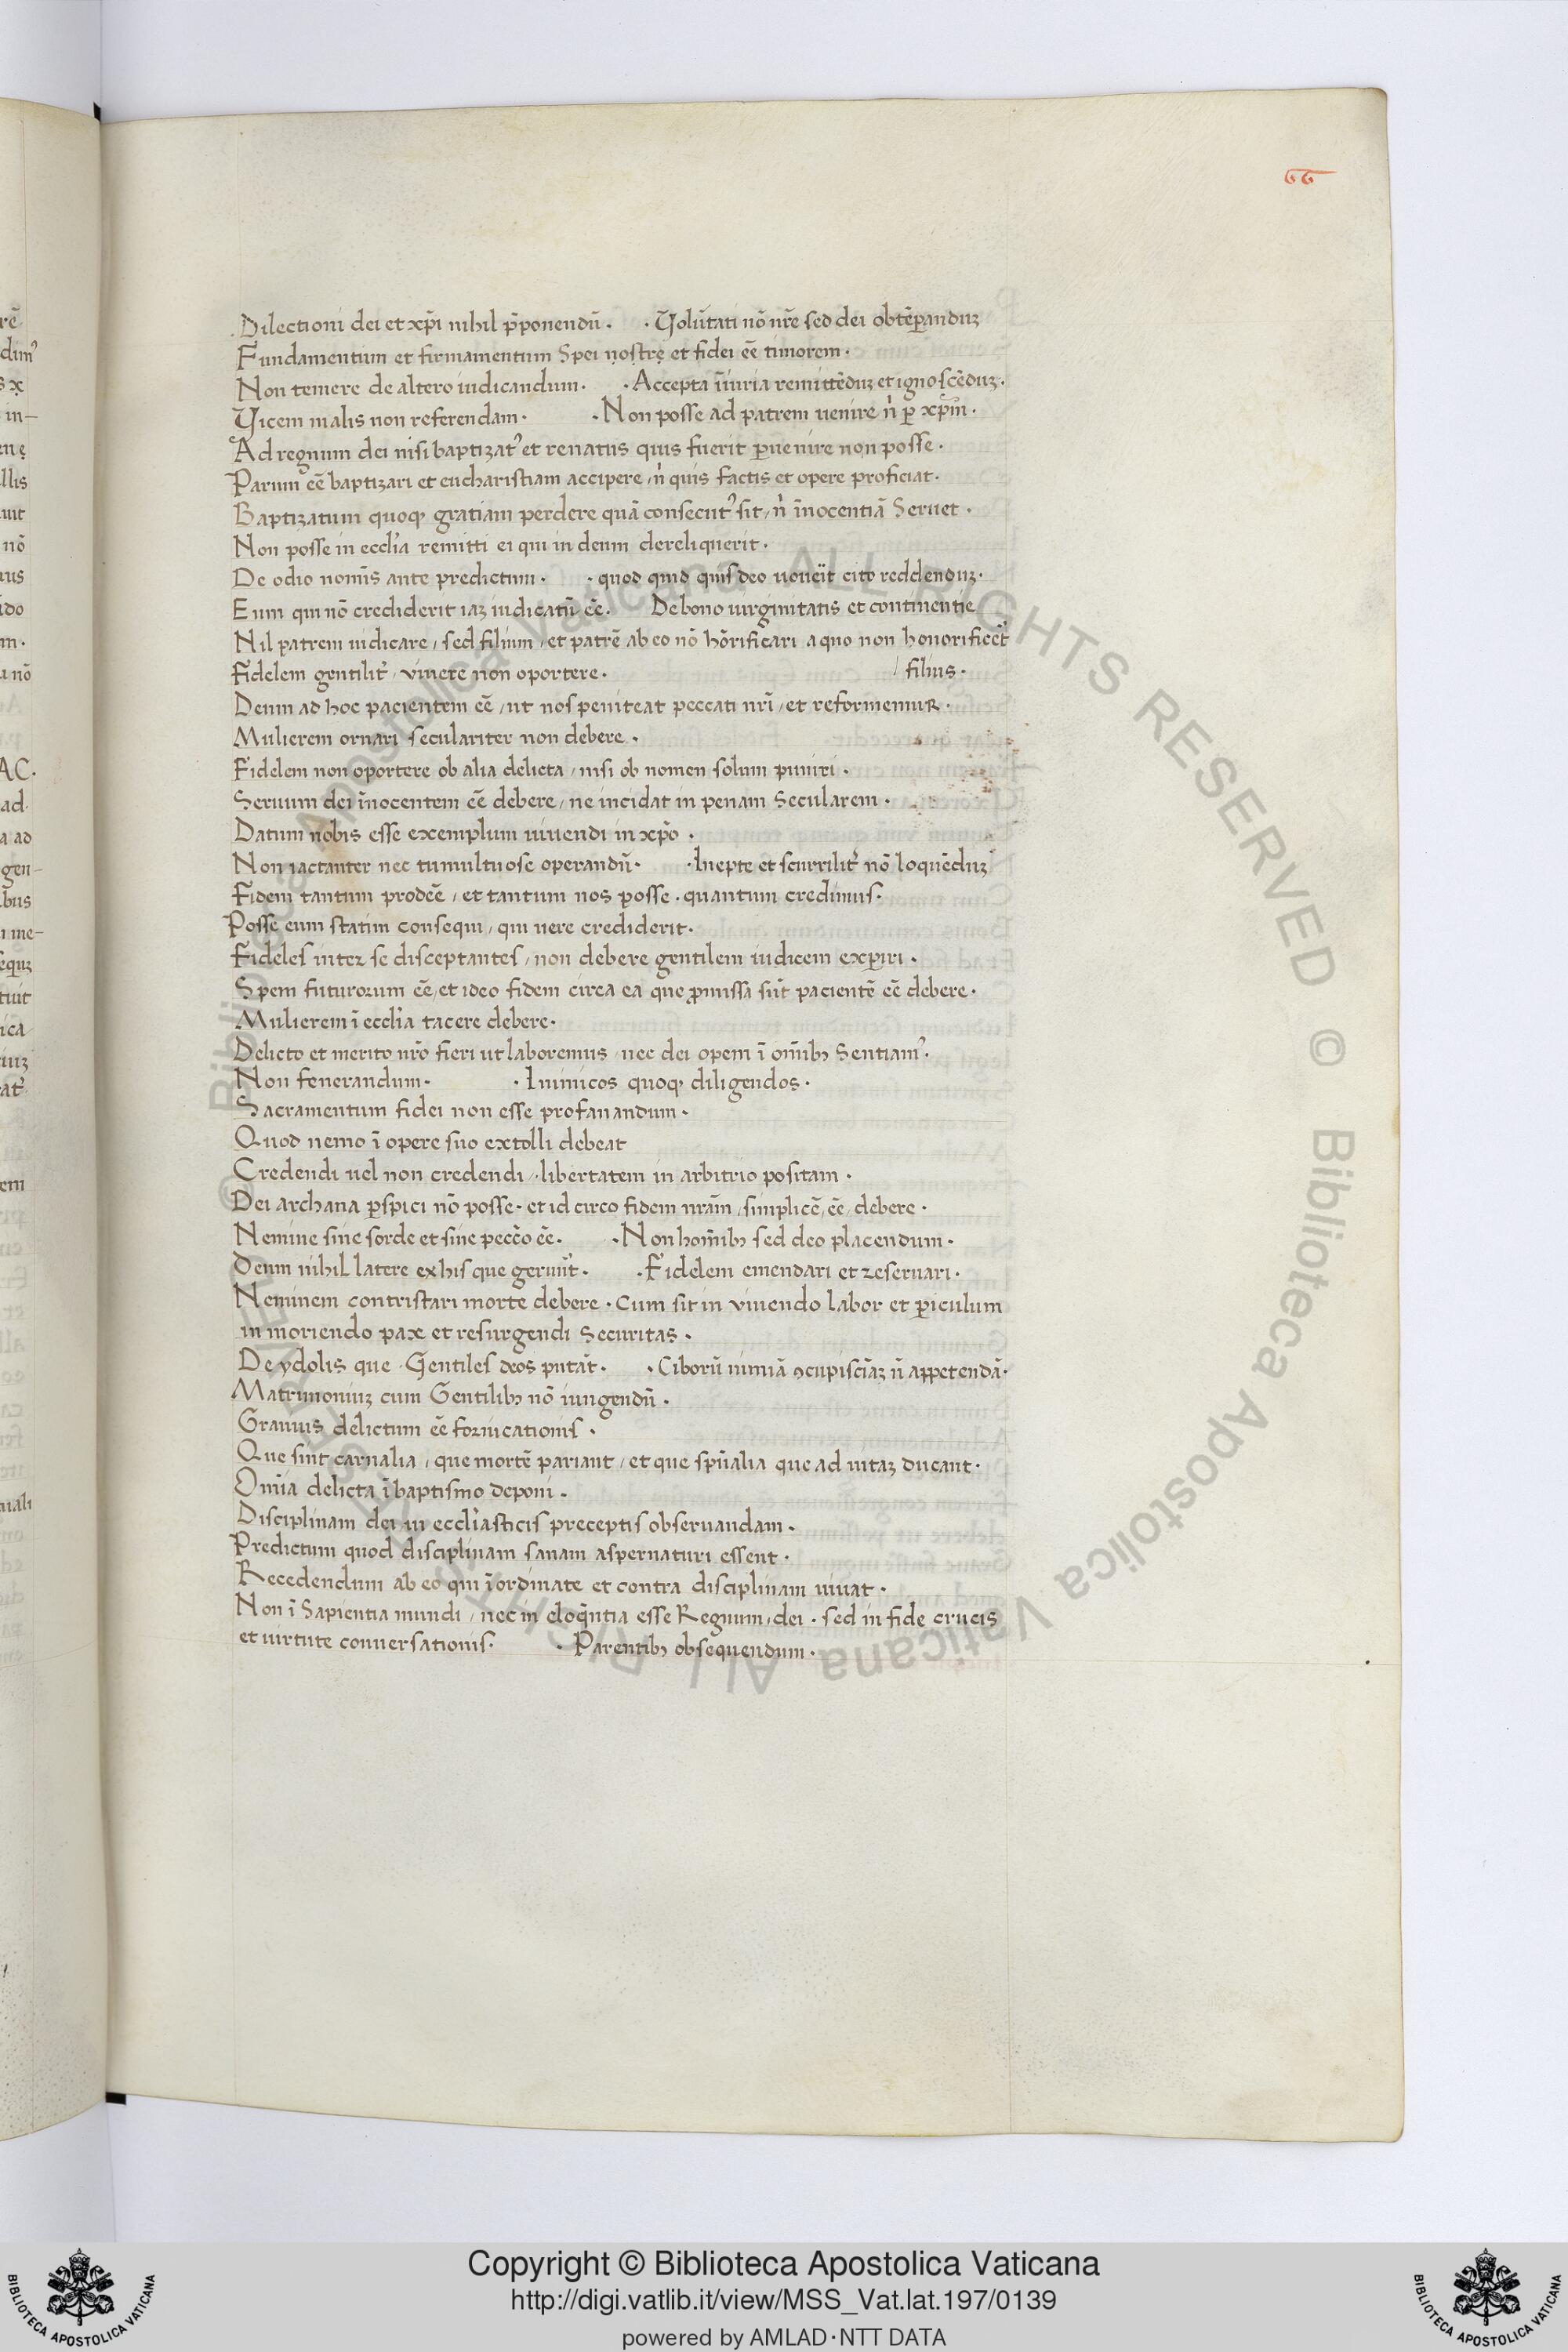 66
Dilectioni dei et xp̄i nihil p̄ponendū · · Volūtati nō nr̄e sed dei obtēꝑanduȝ
Fundamentum et firmamentum Spei nostrę et fidei eē timorem ·
Non temere de altero iudicandum · · Accepta īiuria remittēduȝ et ignoscēduȝ ·
Vicem malis non referendam · · Non posse ad patrem uenire n̄ ꝑ xp̄m ·
Ad regnum dei nisi baptizatꝰ et renatus quis fuerit ꝑuenire non posse ·
Parum eē baptizari et eucharistiam accipere, n̄ quis factis et opere proficiat ·
Baptizatum quoqꝫ gratiam perdere quā consecutꝰ sit, n̄ īnocentiā Seruet ·
Non posse in eccl̄ia remitti ei qui in deum dereliquerit ·
De odio nomīs ante predictum · · quod quid quis deo uoueīt cito reddenduȝ ·
Eum qui nō crediderit iaȝ iudicatū eē · De bono uirginitatis et continentię
Nil patrem iudicare, sed filium, et patrē ab eo nō hōrificari a quo non honorificet᷑
Fidelem gentilit᷑, viuere non oportere · / filius ·
Deum ad hoc pacientem eē, ut nos peniteat peccati nr̄i, et reformemur ·
Mulierem ornari seculariter non debere ·
Fidelem non oportere ob alia delicta, nisi ob nomen solum puniri ·
Seruum dei īnocentem eē debere, ne incidat in penam Secularem ·
Datum nobis esse exemplum uiuendi in xp̄o ·
Non iactanter nec tumultuose operandū · · Inepte et scurrilit᷑ nō loquēduȝ
Fidem tantum prodeē, et tantum nos posse · quantum credimus ·
Posse eum statim consequi, qui uere crediderit ·
Fideles inter se disceptantes, non debere gentilem iudicem exꝑiri ·
Spem futurorum eē, et ideo fidem circa ea que ꝓmissa sūt pacientē eē debere ·
Mulierem ī eccl̄ia tacere debere ·
Delicto et merito nr̄o fieri ut laboremus, nec dei opem ī om̄ibꝫ Sentiamꝰ ·
Non fenerandum · · Inimicos quoqꝫ diligendos ·
Sacramentum fidei non esse profanandum ·
Quod nemo ī opere suo extolli debeat
Credendi uel non credendi, · libertatem in arbitrio positam ·
Dei archana ꝑspici nō posse · et id circo fidem nr̄am, simplicē, eē, debere ·
Nemine sine sorde et sine pecc̄o eē · · Non hom̄ibꝫ sed deo placendum ·
Deum nihil latere ex his que gerūt · · Fidelem emendari et reseruari ·
Neminem contristari morte debere · Cum sit in viuendo labor et ꝑiculum
in moriendo pax et resurgendi Securitas ·
De ydolis que · Gentiles deos putāt · · Ciborū nimiā ꝯcupisc̄iaȝ n̄ appetendā ·
Matrimoniuȝ cum Gentilibꝫ nō iungendū ·
Grauius delictum eē fornicationis ·
Que sint carnalia, que mortē pariant, et que sp̄ualia que ad uitaȝ ducant ·
Om̄ia delicta ī baptismo deponi ·
Disciplinam dei in eccl̄iasticis preceptis obseruandam ·
Predictum quod disciplinam sanam aspernaturi essent ·
Recedendum ab eo qui īordinate et contra disciplinam uiuat ·
Non ī Sapientia mundi, nec in eloq̄ntia esse Regnum, dei · sed in fide crucis
et uirtute conuersationis · · Parentibꝫ obsequendum ·
© Biblioteca Apostolica Vaticana ALL RIGHTS RESERVED
Copyright © Biblioteca Apostolica Vaticana
http://digi.vatlib.it/view/MSS_Vat.lat.197/0139
powered by AMLAD·NTT DATA
BIBLIOTECA APOSTOLICA VATICANA
BIBLIOTECA APOSTOLICA VATICANA